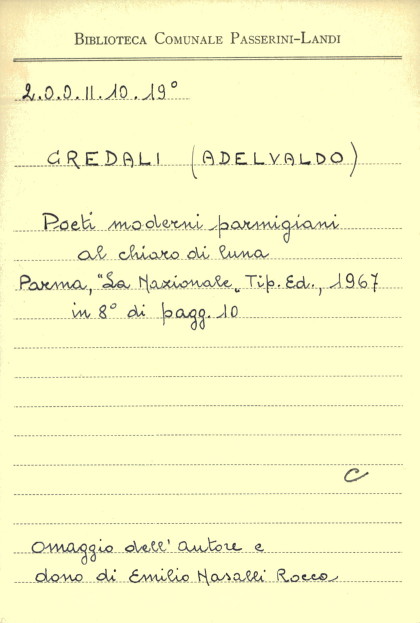 BIBLIOTECA COMUNALE PASSERINI-LANDI
2.0.0.II.10.19°
CREDALI (ADELVALDO)
Poeti moderni parmigiani
al chiaro di luna
Parma, "La Nazionale" Tip. Ed., 1967
in 8° di pagg. 10
C
Omaggio dell'autore e
dono di Emilio Nasalli Rocca